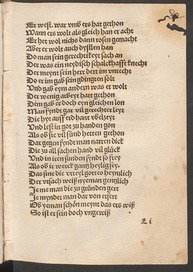 Er west. war vmb ers hat gethon
Wann ers wolt als gleich han eracht
Er het wol nichts dann rosen gemacht
Aber er wolt auch dystlen han
Do man sein gerechtikeyt sach an
Der was ein neydisch schalckhafft knecht
Der meynt sein herr dett im vnrecht
Do er im gab sein gdingten solt
Vnd gab eym andern was er wolt
Der wenig arbeyt hatt gethon
Dem gab er doch eyn gleichen lon
Man fyndt gar vil gerechter
Die hye auff erd hant vbelzyt
Vnd lest in got zu handen gon
Als ob sie vil sünd hetten gethon
Dar gegen fyndt man narren dick
Die zu all sachen hand vil glück
Vnd in iren sunden synt so fry
Als ob ir werck ganz heylig sy
Das sint die vrteyl gottes heymlich
Der vrsach weiß nyeman gentzlich
Je me man die zu gründen gert
Je mynder man dar von erfert
Ob yeman schon meynt das ers wiß
So ist er sein doch vngewiß